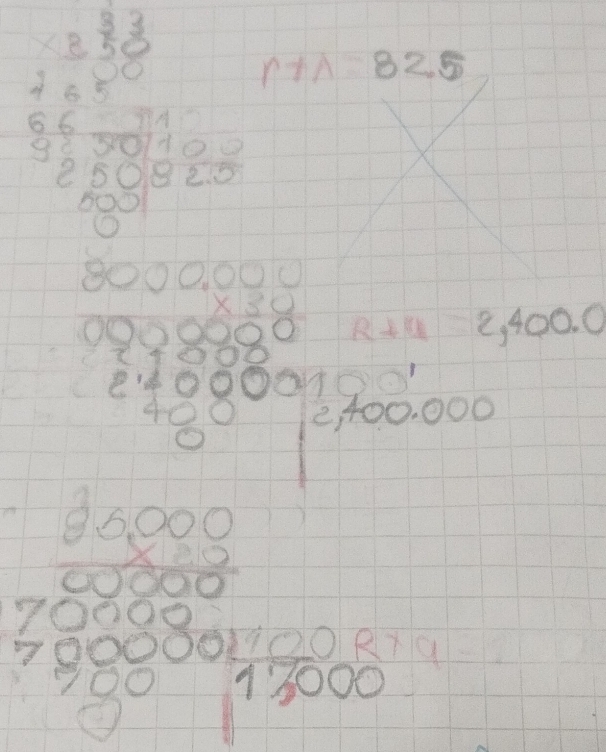 33
× 250
00
165
66
8250 100
250 82.5
500
0
r+A = 82.5
8000.000
×30
0000000
24000
100
400 2,400.000
0
R+a = 2,400.0
85,000
× 20
00000
70000
700000 100 R+a
700 17,000
0